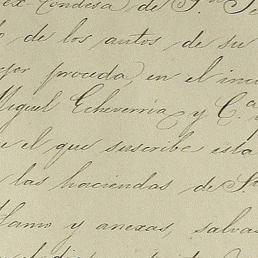 ex-Condesa de Sn. Fe
o de los autos de su
jor proceda, en el inci
Miguel Echeverria y C.a
e el que suscribe esta
las haciendas de Sn
lamo y anexas, salva